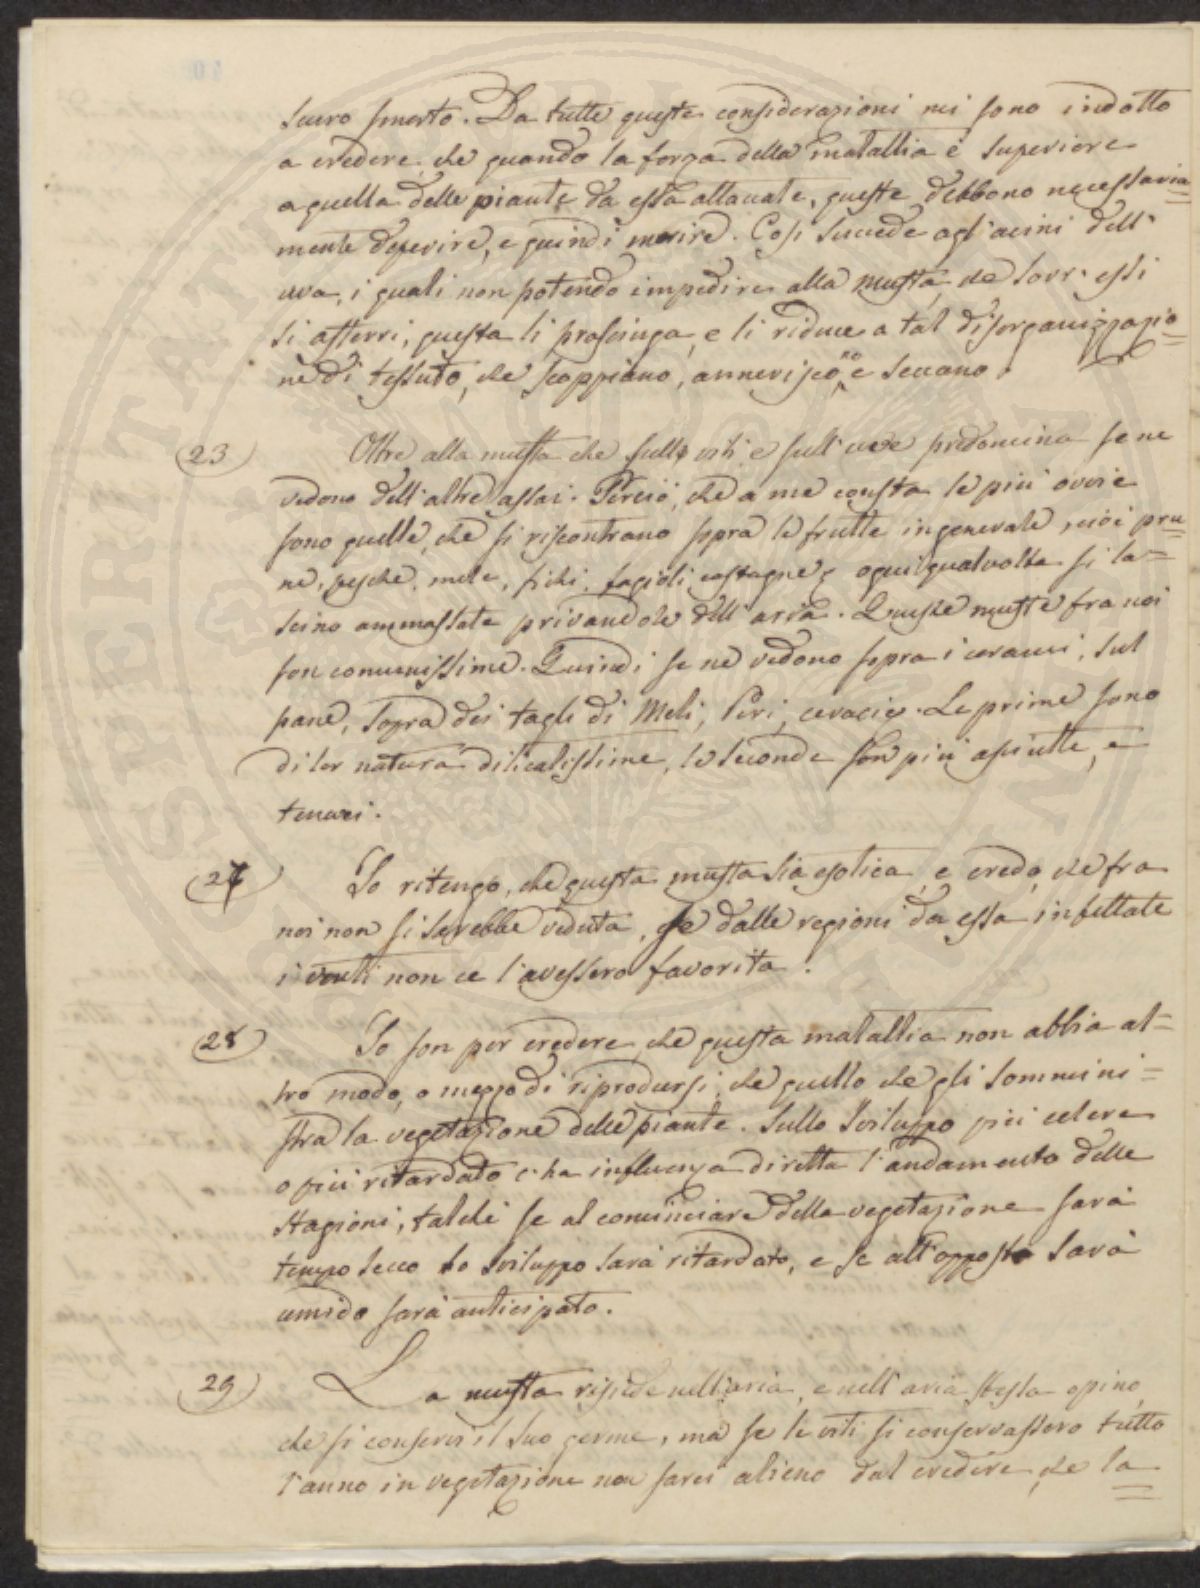 suero smorto. Da tutte queste considerazioni mi sono indotto
a credere che quando la forza della malattia è superiore
a quella delle piante da essa attaccate, queste debbono necessaria=
mente deperire, e quindi morire. Così succede agl'acini dell'
uva, i quali non potendo impedire alla muffa, che sovr'essi
si atterri, questa li prosciuga, e li riduce a tal disorganizzazio=
ne di tessuto, che scoppiano, anneriscono e seccano.
23 Oltre alla muffa che sulle viti e sull'uve predomina se ne
vedono dell'altre assai. Perciò, che a me consta le più ovvie
sono quelle, che si riscontrano sopra le frutte in generale, cioè pru=
ne, pesche, mele, fichi, fagioli, castagne, ogniqualvolta si la=
scino ammassate privandole dell'aria. Queste muffe fra noi
son comunissime. Quindi se ne vedono sopra i coracci, sul
pane, sopra dei tagli di Meli, Peri, ceracie. Le prime sono
di lor natura dilicatissime, le seconde son più asciutte, e
tenaci.
27 Io ritengo, che questa muffa sia esotica, e credo, che fra
noi non si sarebbe veduta, se dalle regioni da essa infettate
i venti non ce l'avessero favorita.
28 Io son per credere che questa malattia non abbia al=
tro modo, o mezzo di riprodursi, che quello che gli sommini=
stra la vegetazione delle piante. Sullo sviluppo più celere
o più ritardato c'ha influenza diretta l'andamento delle
stagioni, talché se al cominciare della vegetazione sarà
tempo secco lo sviluppo sarà ritardato, e se all'opposto sarà
umido sarà anticipato.
29 La muffa risiede nell'aria, e nell'aria stessa opino,
che si conservi il suo germe, ma se le viti si conservassero tutto
l'anno in vegetazione non sarei alieno dal credere, che la=